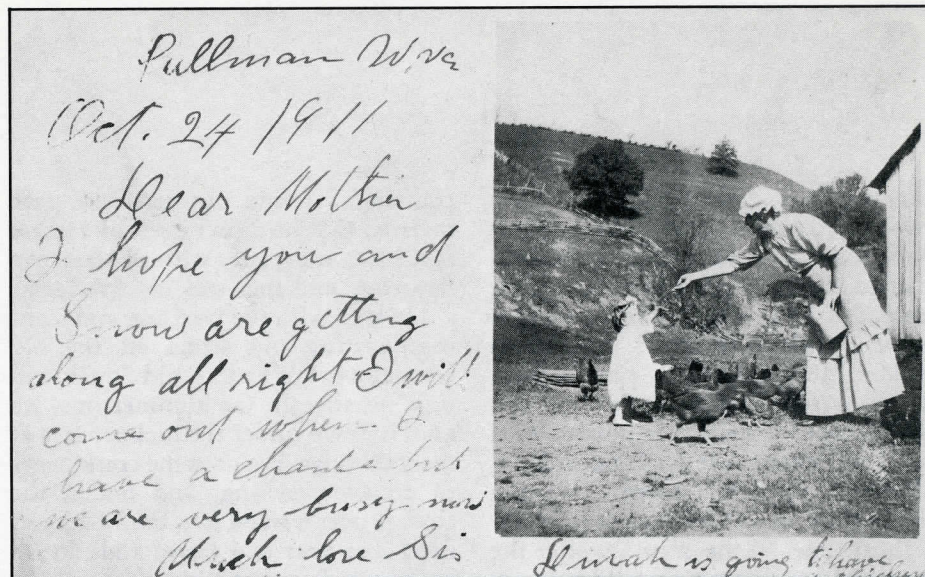 Pullman W.va
Oct. 24 1911
Dear Mother
I hope you and
Snow are getting
along all right I will
come out when I
have a chance but
we are very busy now
Much love Sis
is going to have